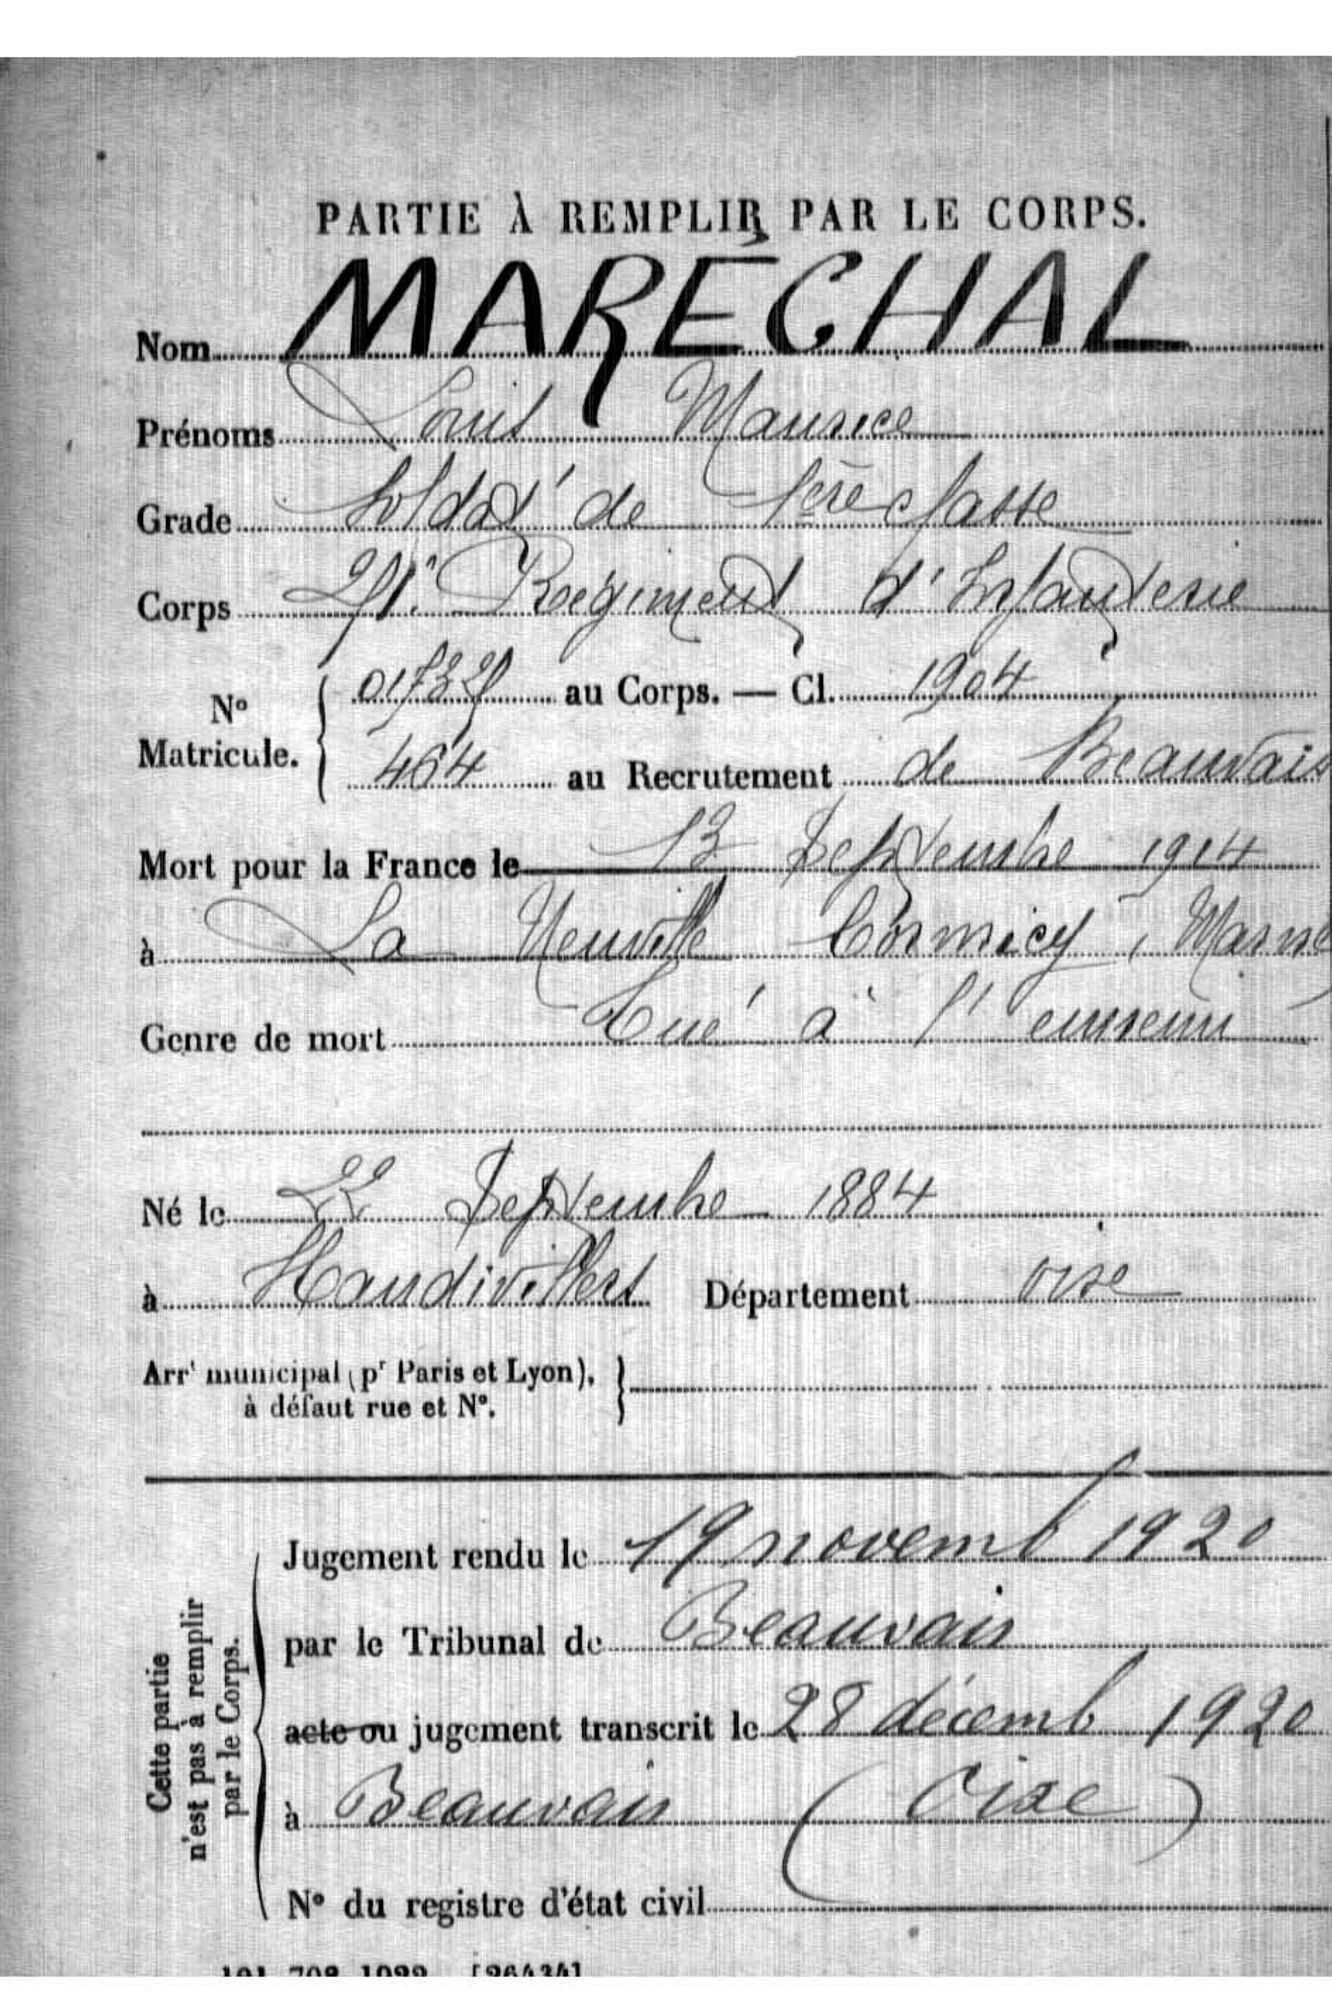 PARTIE À REMPLIR PAR LE CORPS.
Nom MARÉCHAL
Prénoms Louis Maurice
Grade Soldat de 1ère classe
Corps Régiment d'Infanterie
N° Matricule. au Corps. — Cl. 1904
464 au Recrutement de Beauvais
Mort pour la France le 13 Septembre 1914
à La Neuville Cormicy, Marne
Genre de mort Tué à l'ennemi
Né le 22 Septembre 1884
à Haudivillers Département Oise
Arrt municipal (pr Paris et Lyon),
à défaut rue et N°.
Cette partie
n'est pas à remplir
par le Corps.
Jugement rendu le 19 novemb 1920
par le Tribunal de Beauvais
acte ou jugement transcrit le 28 décemb 1920
à Beauvais (Oise)
N° du registre d'état civil